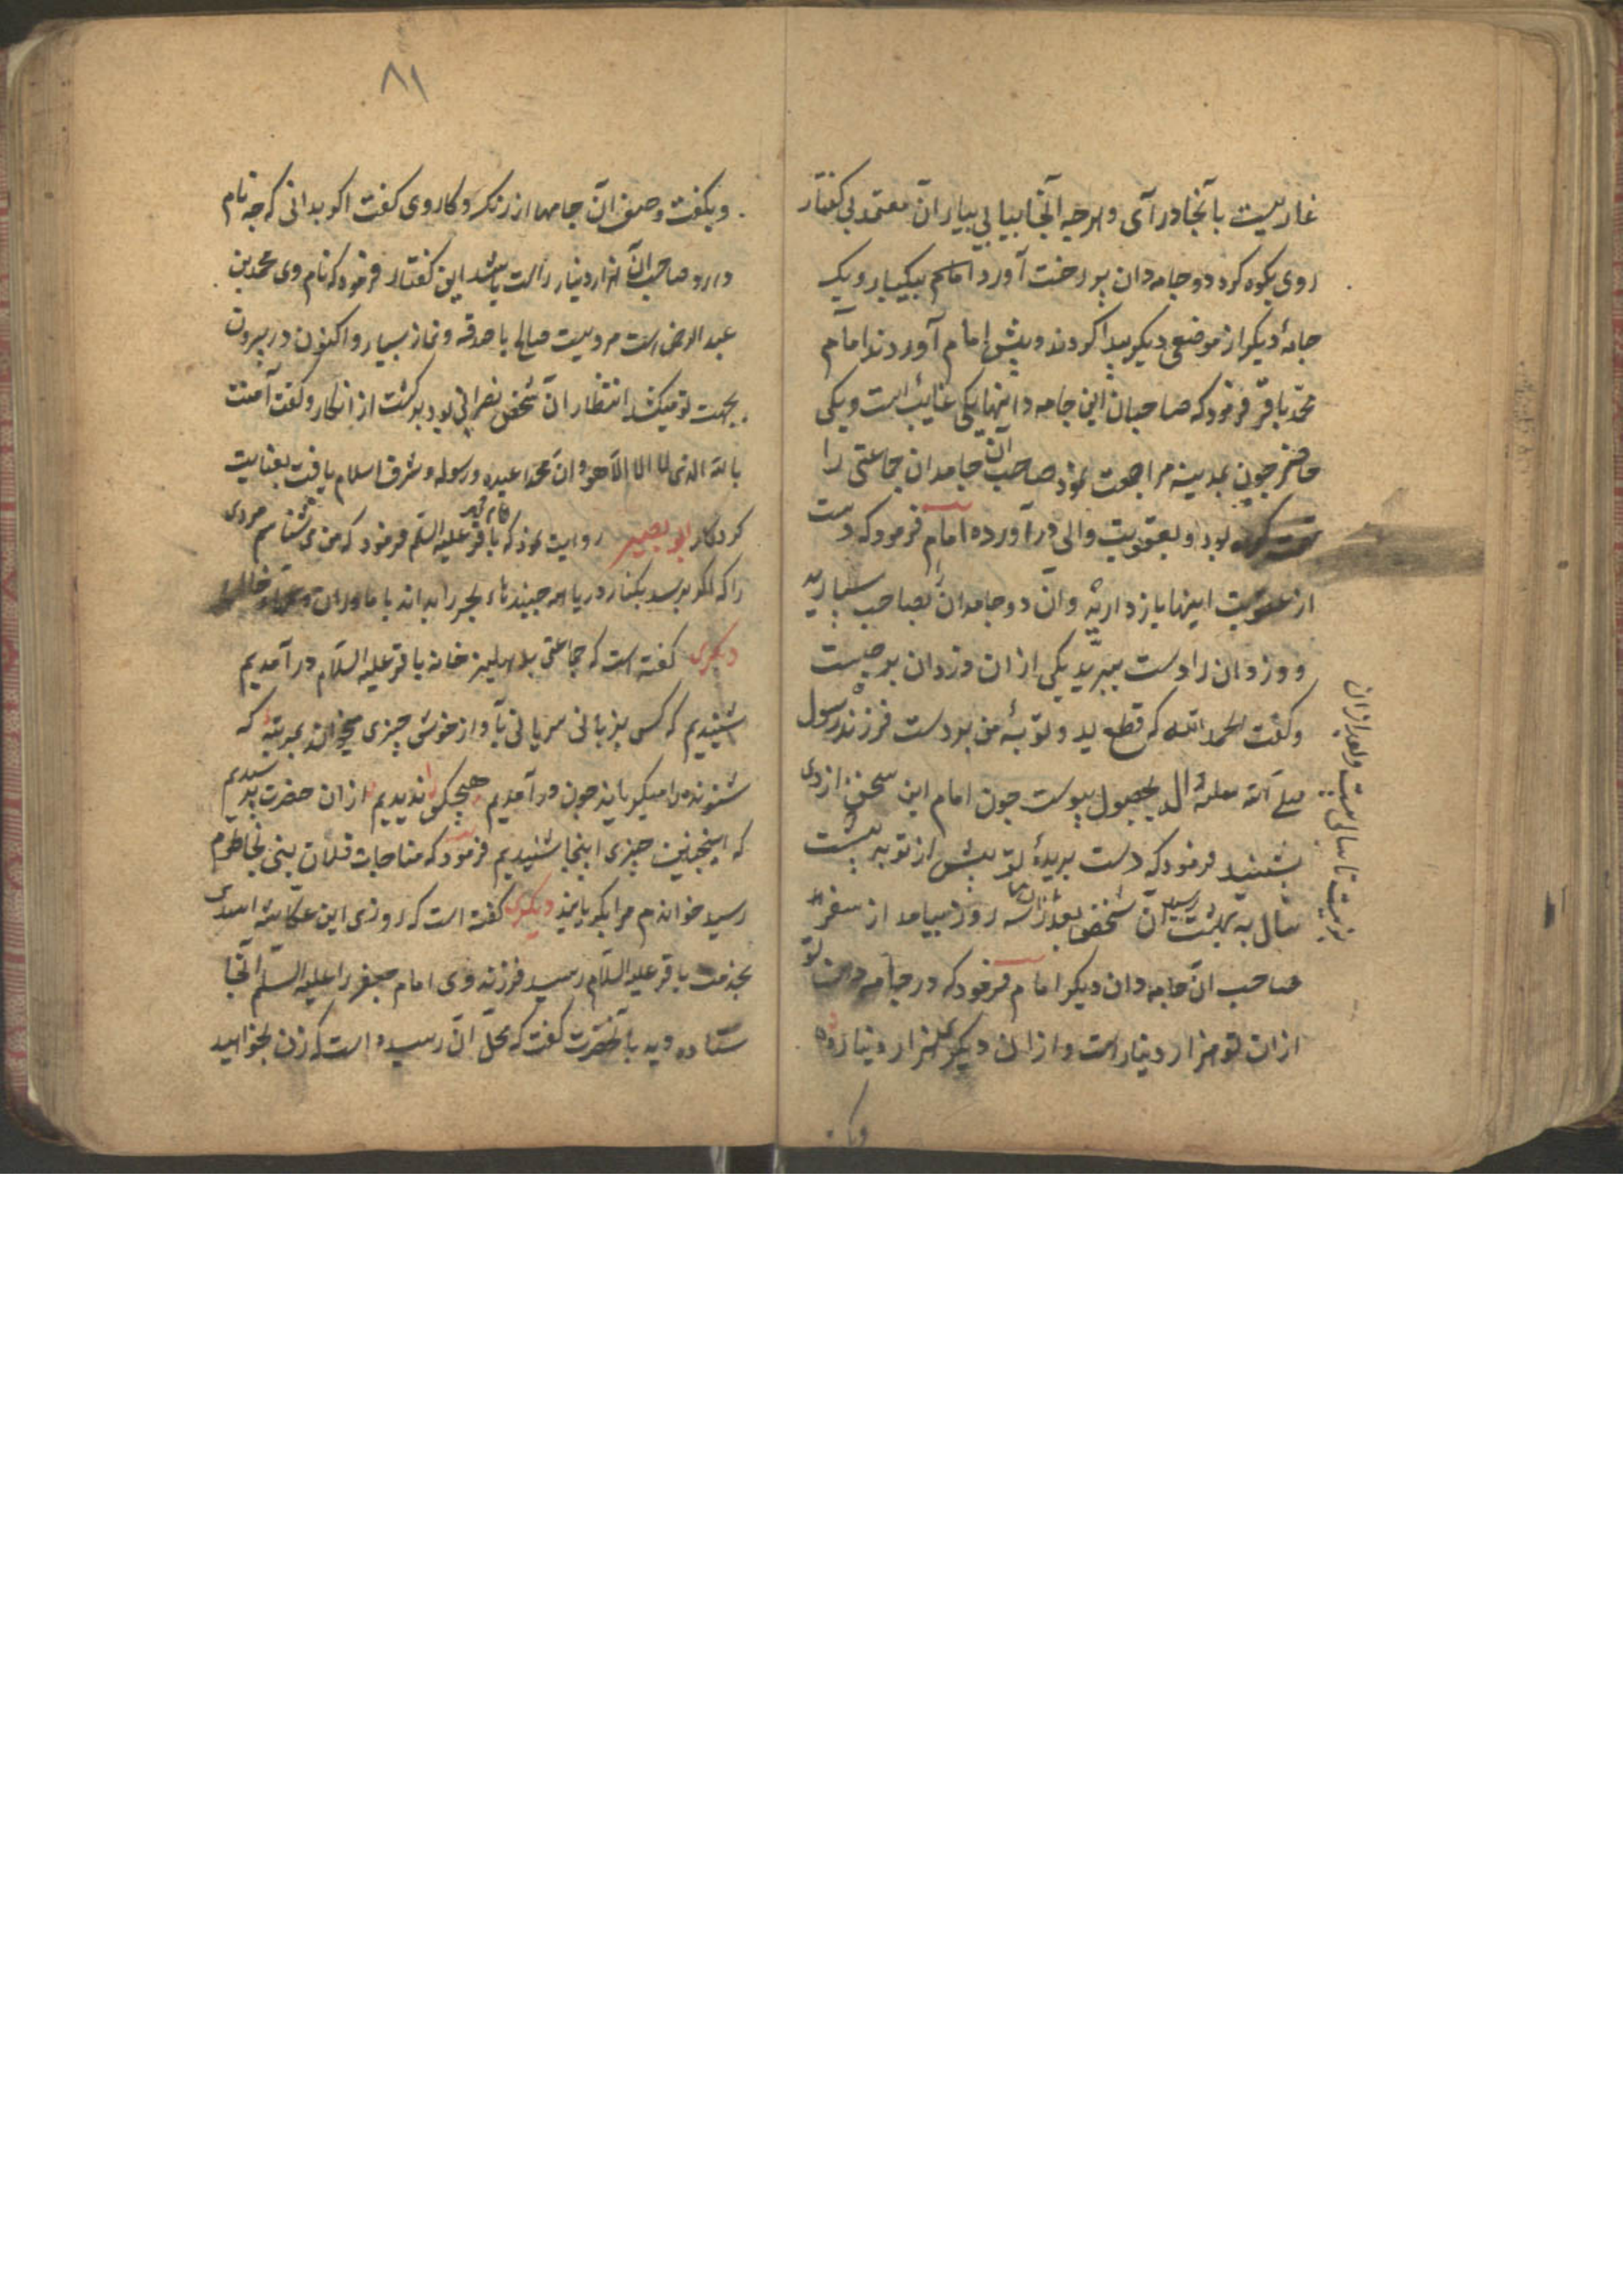 غاریست بآنجا درآی و هرچه آنجا بیابی بیار آن معتمد بی گفتار
روی بکوه کرد دو جامه دان پر رخت آورد امام بیکبار و یک
جامهٔ دیگر از موضعی دیگر پیدا کردند و پیش امام آوردند امام
محمد باقر فرمود که صاحبان این جامه دانها یکی غایب است و یکی
حاضر چون بمدینه مراجعت نمود صاحب آن جامدان جماعتی را
بود و بعقوبت والی درآورده امام فرمود که دست
از عقوبت اینها باز دارید و آن دو جامدان بصاحب سپارید
و دزدان را دست ببرید یکی از آن دزدان برجست
و گفت الحمد لله که قطع ید و توبهٔ من بر دست فرزند رسول
صلی الله علیه و آله بحصول پیوست چون امام این سخن از وی
بشنید فرمود که دست بریدهٔ تو پیش از تو به بیست
سال به بهشت رسید آن شخص بعد از آن سه روز بیامد از سفر
صاحب آن جامه دان دیگر امام فرمود که در جامه دان تو
از آن تو هزار دینار است و از آن دیگری هزار دینار
زیست تا سال بیست و بعد از آن
وبک
۸۱
وبگفت وصف آن جامها از رنگ و کار وی گفت اگر بدانی که چه نام
دارد صاحب آن هزار دینار راست باشد این گفتار فرمود که نام وی محمد بن
عبد الرحمن است مردیست صالح با صدقه و نماز بسیار و اکنون در بیرون
بجهت تو میکشد انتظار آن شخص نصرانی بود برگشت از انکار و گفت آمنت
بالله الذی لا اله الا هو وان محمدا عبده ورسوله و شرف اسلام یافت بعنایت
کردگار ابو بصیر روایت نمود که امام محمد باقر علیه السلم فرمود که من می شناسم مردی
را که اگر برسد بکنار دریا
دیگری گفته است که جماعتی بدهلیز خانه باقر علیه السلام درآمدیم
شنیدیم که کسی بزبانی سریانی بآواز خوش چیزی میخواند بمرتبهٔ که
شنونده را میگریاند چون درآمدیم هیچکس را ندیدیم از آن حضرت پرسیدیم
که اینچنین چیزی اینجا شنیدیم فرمود که مناجات فلان نبی بخاطرم
رسید خواندم مرا بگریانید دیگری گفته است که روزی ابن عکاشه اسدی
بخدمت باقر علیه السلام رسید فرزند وی امام جعفر را علیه السلم آنجا
ستاده دید بآنحضرت گفت که محل آن رسیده است که زن بخواهید